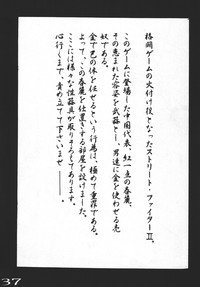 格闘ゲームの火付け役となったストリート・ファイターⅡ。
このゲームに登場した中国代表、紅一点の春麗。
その恵まれた容姿を武器とし、男達に金を使わせる売
奴である。
金で己の体を任せるという行為は、極めて重罪である。
よって、この春麗を仕置きする部屋を設けました。
ここには様々な性器具が取りそろえてあります。
心行くまで、責め立てて下さいませ――――。
37